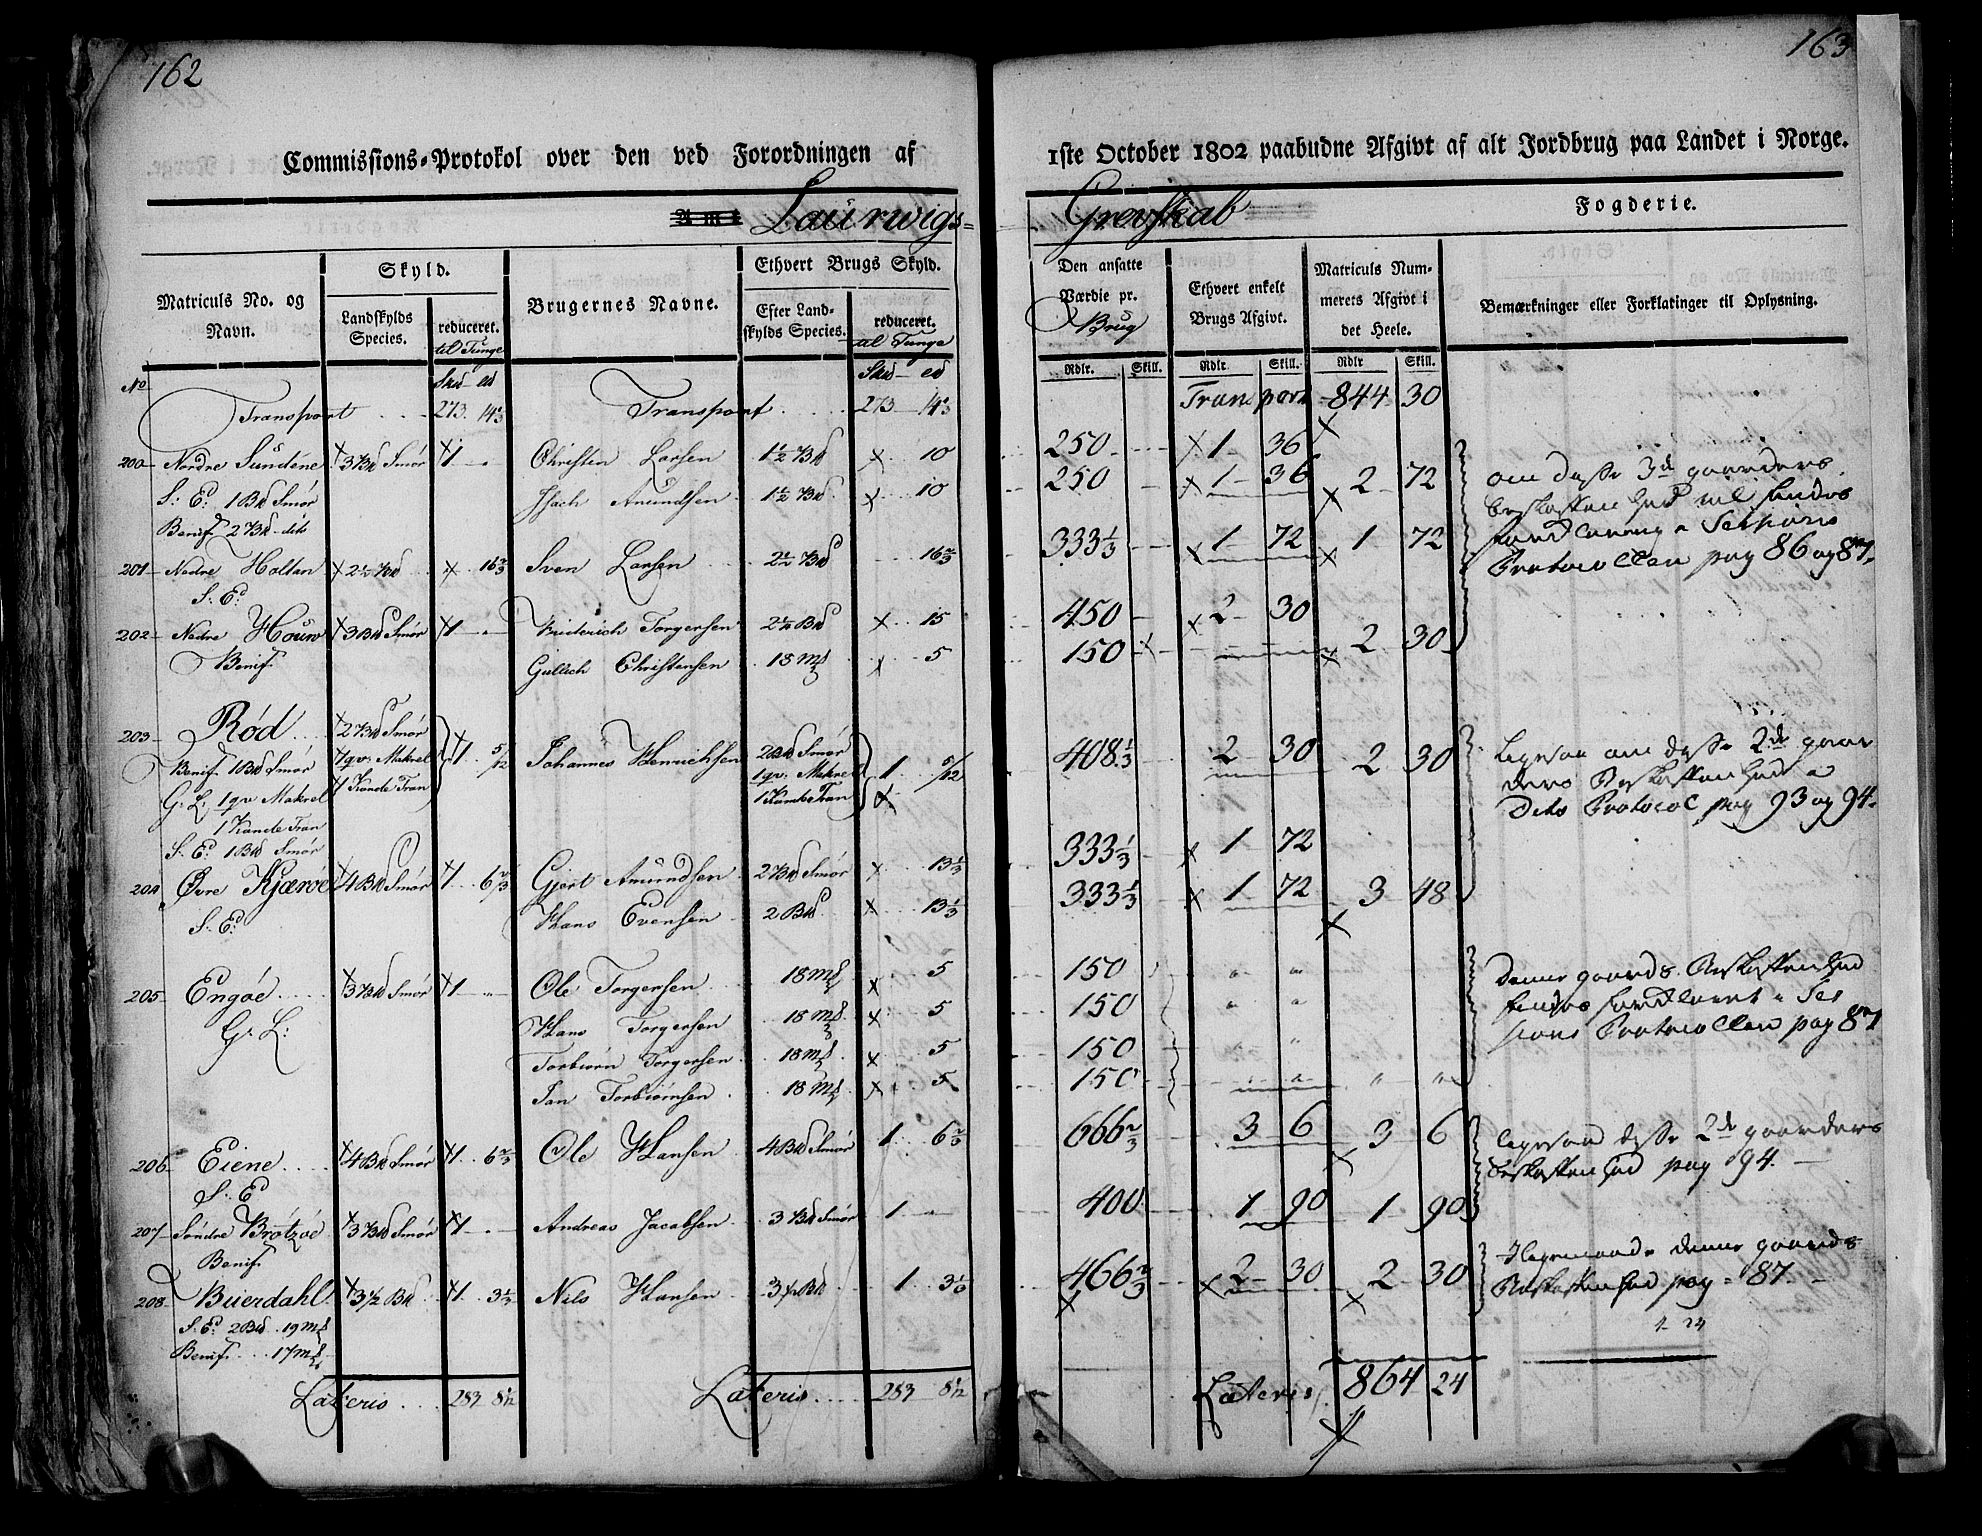 162
163
Commissions-Protokol over den ved Forordningen af
1ste October 1802 paabudne Afgivt af alt Jordbrug paa Landet i Norge.
Amt Laurwigs-
Grevskab Fogderie.
Matriculs No. og Navn.
Skyld.
Landskylds Species.
reduceret. til Tunge
Brugernes Navne.
Ethvert Brugs Skyld.
Efter Landskylds Species.
reduceret. til Tunge
Den ansatte Værdie pr. Brug
Ethvert enkelt Brugs Afgivt.
Matriculs Nummerets Afgivt i det Heele.
Bemærkninger eller Forklaringer til Oplysning.
No
Rdlr. Skill. Rdlr Skill. Rdlr Skill.
Transport 273 14 Transport 273 14 Transport 844 30
200 Nordre Sundene 3 Bd Smør 1 - Christen Larsen 1½ Bd 10 250 1 36
S: E: 1 Bd Smør Isach Amundsen 1½ Bd 10 250 1 36 2 72
Benif 2 Bd dito
201 Nedre Holtan 2½ Bd 16⅔ Sven Larsen 2½ Bd 16⅔ 333⅓ 1 72 1 72
S: E:
202 Nedre Houw 3 Bd Smør 1 - Friderich Torgersen 2¼ Bd 15 450 2 30
Benif. Gullich Christensen 18 mk 5 150 2 30
203 Rød 2 Bd Smør Johannes Henrichsen 2 Bd Smør 408⅓ 2 30 2 30
Benif 1 Bd Smør 1 qv: Makrel 1 5/12 1 qv: Makrel 1 5/12
G: L: 1 qv Makrel 1 Kande Tran 1 Kande Tran
1 Kande Tran
S. E: 1 Bd Smør
204 Øvre Kjærre 4 Bd Smør 1 6⅔ Gjert Amundsen 2 Bd Smør 13⅓ 333⅓ 1 72
S. E: Hans Evensen 2 Bd 13⅓ 333⅓ 1 72 3 48
205 Engøe 3 Bd Smør 1 - Ole Torgersen 18 mk 5 150 " "
G: L: Hans Torgersen 18 mk 5 150 " "
Torbiørn Torgersen 18 mk 5 150 " "
Jan Torbiørnsen 18 mk 5 150 " " " "
206 Eiene 4 Bd Smør 1 6⅔ Ole Hansen 4 Bd Smør 1 6⅔ 666⅔ 3 6 3 6
S. E
207 Søndre Brøtzøe 3 Bd Smør 1 - Andreas Jacobsen 3 Bd Smør 1 - 400 1 90 1 90
Benif.
208 Buerdahl 3½ Bd 1 3⅓ Nils Hansen 3½ Bd 1 3⅓ 466⅔ 2 30 2 30
S. E: 2 Bd 19 mk
Benif. 17 mk
Lateris 283 8 1/12 Lateris 283 8 1/12 Lateris 864 24
om disse 3de gaarders
beskaffenhed vil findes
forklaring i Sessions
Protocollen pag 86 og 87.
Ligesaa om disse 2de gaar
ders Beskaffenhed i
Dito Protocol pag 93 og 94.
Denne gaards Beskaffenhed
findes forklaret i Ses
sions Protocollen pag 87
ligesaa disse 2de gaarders
beskaffenhed pag 94.
denne gaards
Beskaffenhed pag 87